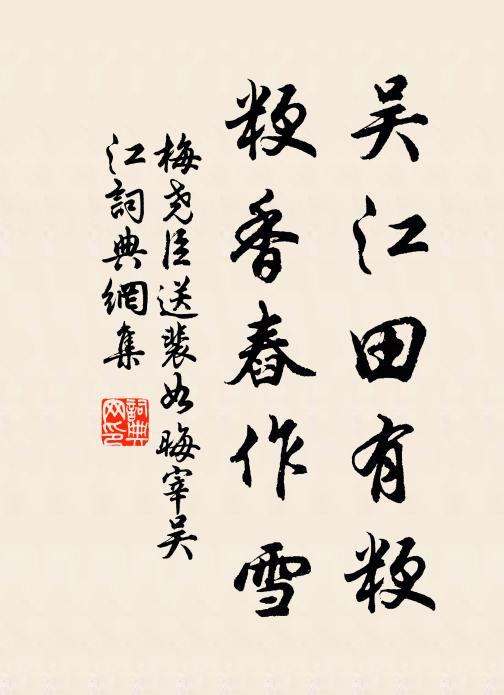 吴江田有粳
粳香舂作雪
梅尧臣送裴如晦宰吴
江詞典網集
詞典
网印